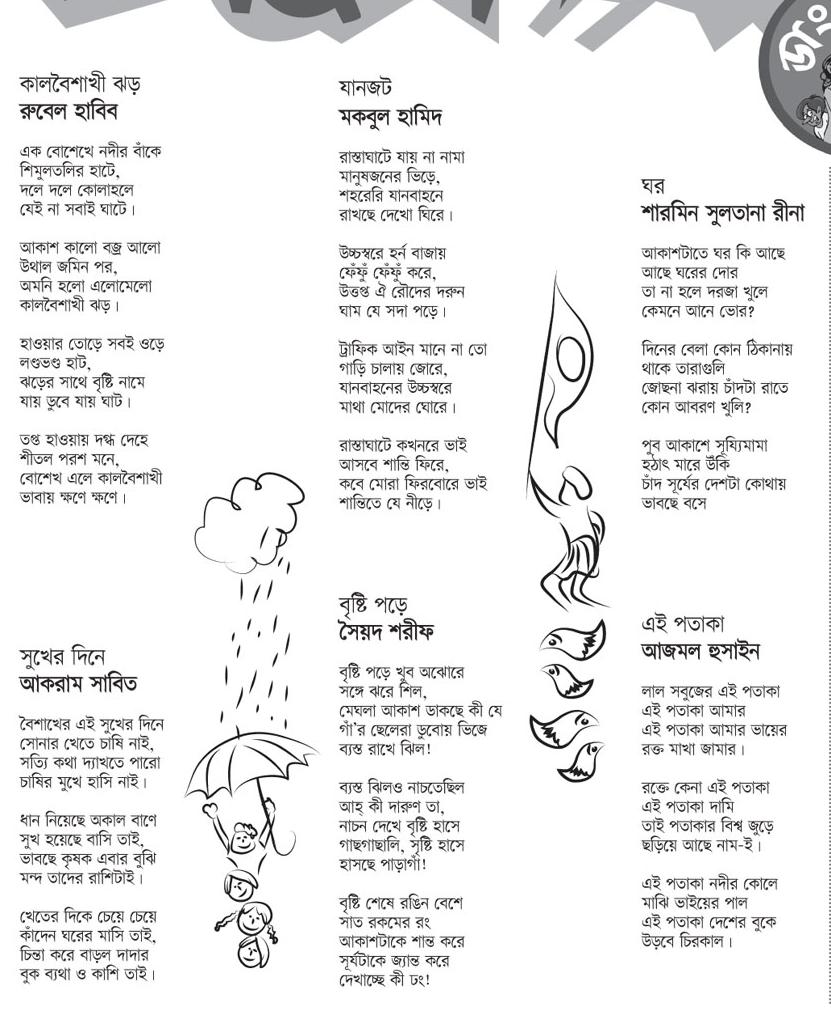 কালবৈশাখী ঝড়
রুবেল হাবিব
এক বোশেখে নদীর বাঁকে
শিমুলতলির হাটে,
দলে দলে কোলাহলে
যেই না সবাই ঘাটে।
আকাশ কালো বজ্র আলো
উথাল জমিন পর,
অমনি হলো এলোমেলো
কালবৈশাখী ঝড়।
হাওয়ার তোড়ে সবই ওড়ে
লণ্ডভণ্ড হাট,
ঝড়ের সাথে বৃষ্টি নামে
যায় ডুবে যায় ঘাট।
তপ্ত হাওয়ায় দগ্ধ দেহে
শীতল পরশ মনে,
বোশেখ এলে কালবৈশাখী
ভাবায় ক্ষণে ক্ষণে।
সুখের দিনে
আকরাম সাবিত
বৈশাখের এই সুখের দিনে
সোনার খেতে চাষি নাই,
সত্যি কথা দ্যাখতে পারো
চাষির মুখে হাসি নাই।
ধান নিয়েছে অকাল বাণে
সুখ হয়েছে বাসি তাই,
ভাবছে কৃষক এবার বুঝি
মন্দ তাদের রাশিটাই।
খেতের দিকে চেয়ে চেয়ে
কাঁদেন ঘরের মাসি তাই,
চিন্তা করে বাড়ল দাদার
বুক ব্যথা ও কাশি তাই।
যানজট
মকবুল হামিদ
রাস্তাঘাটে যায় না নামা
মানুষজনের ভিড়ে,
শহরেরি যানবাহনে
রাখছে দেখো ঘিরে।
উচ্চস্বরে হর্ন বাজায়
ফেঁফুঁ ফেঁফুঁ করে,
উত্তপ্ত ঐ রৌদের দরুন
ঘাম যে সদা পড়ে।
ট্রাফিক আইন মানে না তো
গাড়ি চালায় জোরে,
যানবাহনের উচ্চস্বরে
মাথা মোদের ঘোরে।
রাস্তাঘাটে কখনরে ভাই
আসবে শান্তি ফিরে,
কবে মোরা ফিরবোরে ভাই
শান্তিতে যে নীড়ে।
বৃষ্টি পড়ে
সৈয়দ শরীফ
বৃষ্টি পড়ে খুব অঝোরে
সঙ্গে ঝরে শিল,
মেঘলা আকাশ ডাকছে কী যে
গাঁ'র ছেলেরা ডুবোয় ভিজে
ব্যস্ত রাখে ঝিল!
ব্যস্ত ঝিলও নাচতেছিল
আহ্ কী দারুণ তা,
নাচন দেখে বৃষ্টি হাসে
গাছগাছালি, সৃষ্টি হাসে
হাসছে পাড়াগাঁ!
বৃষ্টি শেষে রঙিন বেশে
সাত রকমের রং
আকাশটাকে শান্ত করে
সূর্যটাকে জ্যান্ত করে
দেখাচ্ছে কী ঢং!
ঘর
শারমিন সুলতানা রীনা
আকাশটাতে ঘর কি আছে
আছে ঘরের দোর
তা না হলে দরজা খুলে
কেমনে আনে ভোর?
দিনের বেলা কোন ঠিকানায়
থাকে তারাগুলি
জোছনা ঝরায় চাঁদটা রাতে
কোন আবরণ খুলি?
পুব আকাশে সূয্যিমামা
হঠাৎ মারে উঁকি
চাঁদ সূর্যের দেশটা কোথায়
ভাবছে বসে
এই পতাকা
আজমল হুসাইন
লাল সবুজের এই পতাকা
এই পতাকা আমার
এই পতাকা আমার ভায়ের
রক্ত মাখা জামার।
রক্তে কেনা এই পতাকা
এই পতাকা দামি
তাই পতাকার বিশ্ব জুড়ে
ছড়িয়ে আছে নাম-ই।
এই পতাকা নদীর কোলে
মাঝি ভাইয়ের পাল
এই পতাকা দেশের বুকে
উড়বে চিরকাল।